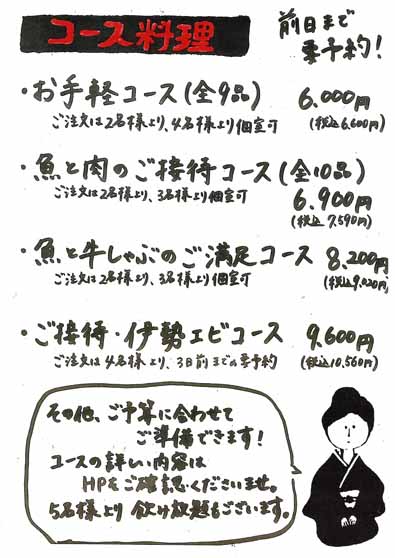 コース料理
前日まで
要予約!
・お手軽コース(全9品) 6.000円
ご注文は2名様より、4名様より個室可 (税込6.600円)
・魚と肉のご接待コース(全10品)
ご注文は2名様より、3名様より個室可 6.900円
(税込7.590円)
・魚と牛しゃぶのご満足コース 8.200円
ご注文は2名様より、3名様より個室可 (税込9.020円)
・ご接待・伊勢エビコース 9.600円
ご注文は4名様より、3日前までの要予約 (税込10.560円)
その他、ご予算に合わせて
ご準備できます!
コースの詳しい内容は
HPをご確認くださいませ。
5名様より飲け放題もございます。